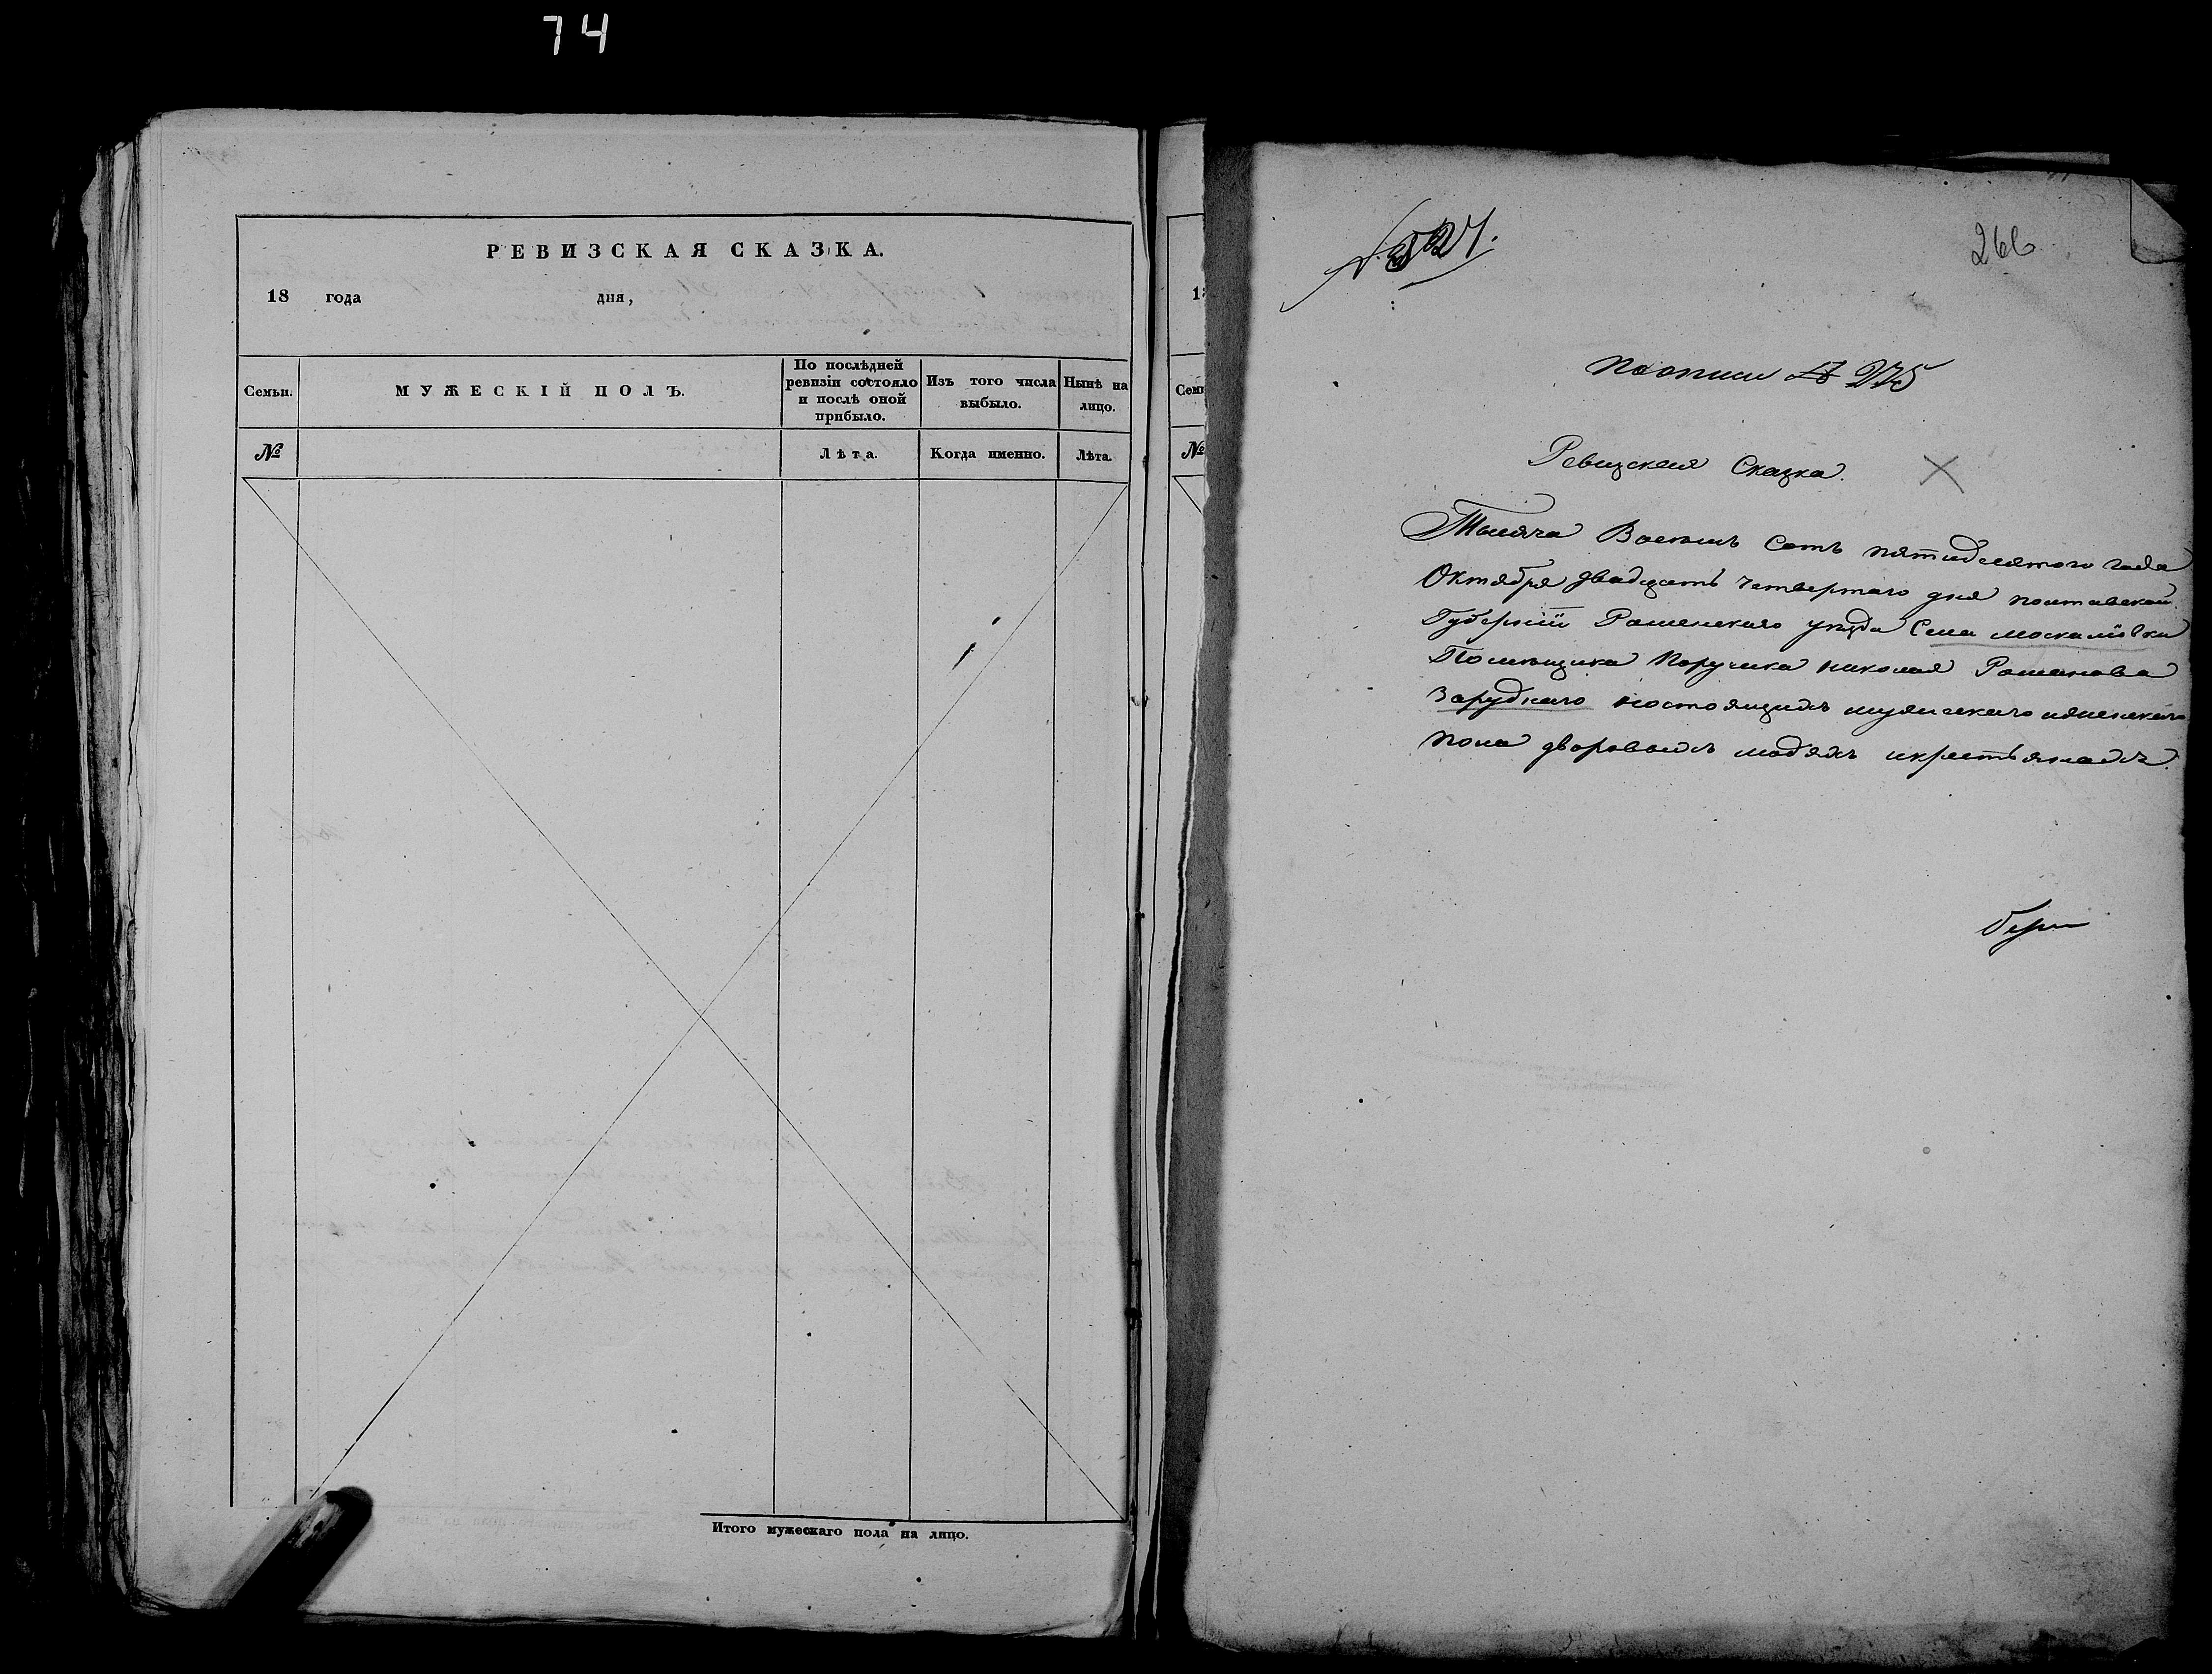 74
РЕВИЗСКАЯ СКАЗКА.
18 года дня,
Семьи.
МУЖЕСКІЙ ПОЛЪ.
По послѣдней ревизіи состояло и послѣ оной прибыло.
Изъ того числа выбыло.
Нынѣ на лицо.
№
Лѣта.
Когда именно.
Лѣта.
Итого мужескаго пола на лицо.
Семь
№
266
По описи № 275
Ревизская Сказка.
Тысяча Восемь Сотъ пятидесятого года
Октября двадцать Четвертаго дня полтавской
Губерніи Роменскаго уезда Села москаліовки
Помещика Поручика николая Романова
Зарудного состоящимъ мужескаго иженскаго
пола дворовымъ людямъ икрестьянамъ.